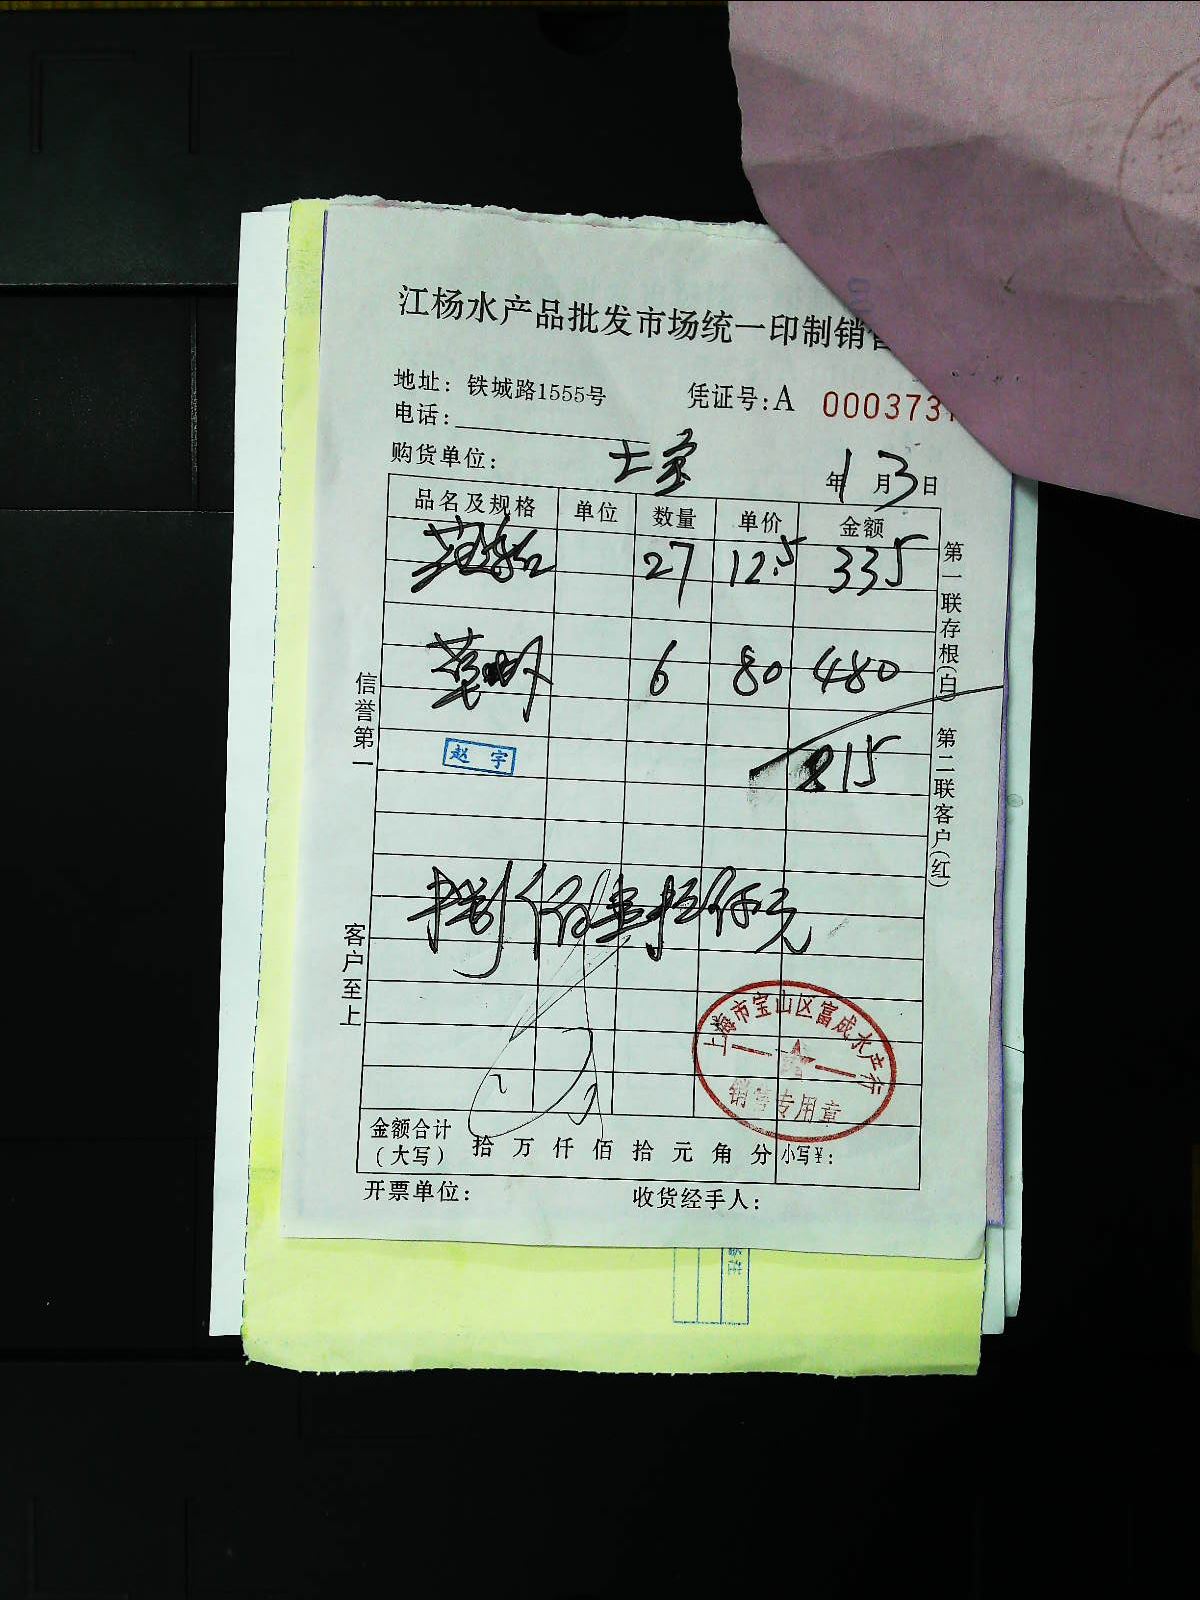 江杨水产品批发市场统一印制销
地址：铁城路1555号 凭证号:A 000373
电话:
购货单位: 年1月3日
品名及规格 单位 数量 单价 金额
27 12.5 335
6 80 480
赵宇
815
捌佰壹拾伍元
信誉第一
客户至上
第一联存根(白) 第二联客户(红)
上海市宝山区富成水产行
销售专用章
金额合计(大写) 拾 万 仟 佰 拾 元 角 分 小写¥:
开票单位: 收货经手人: